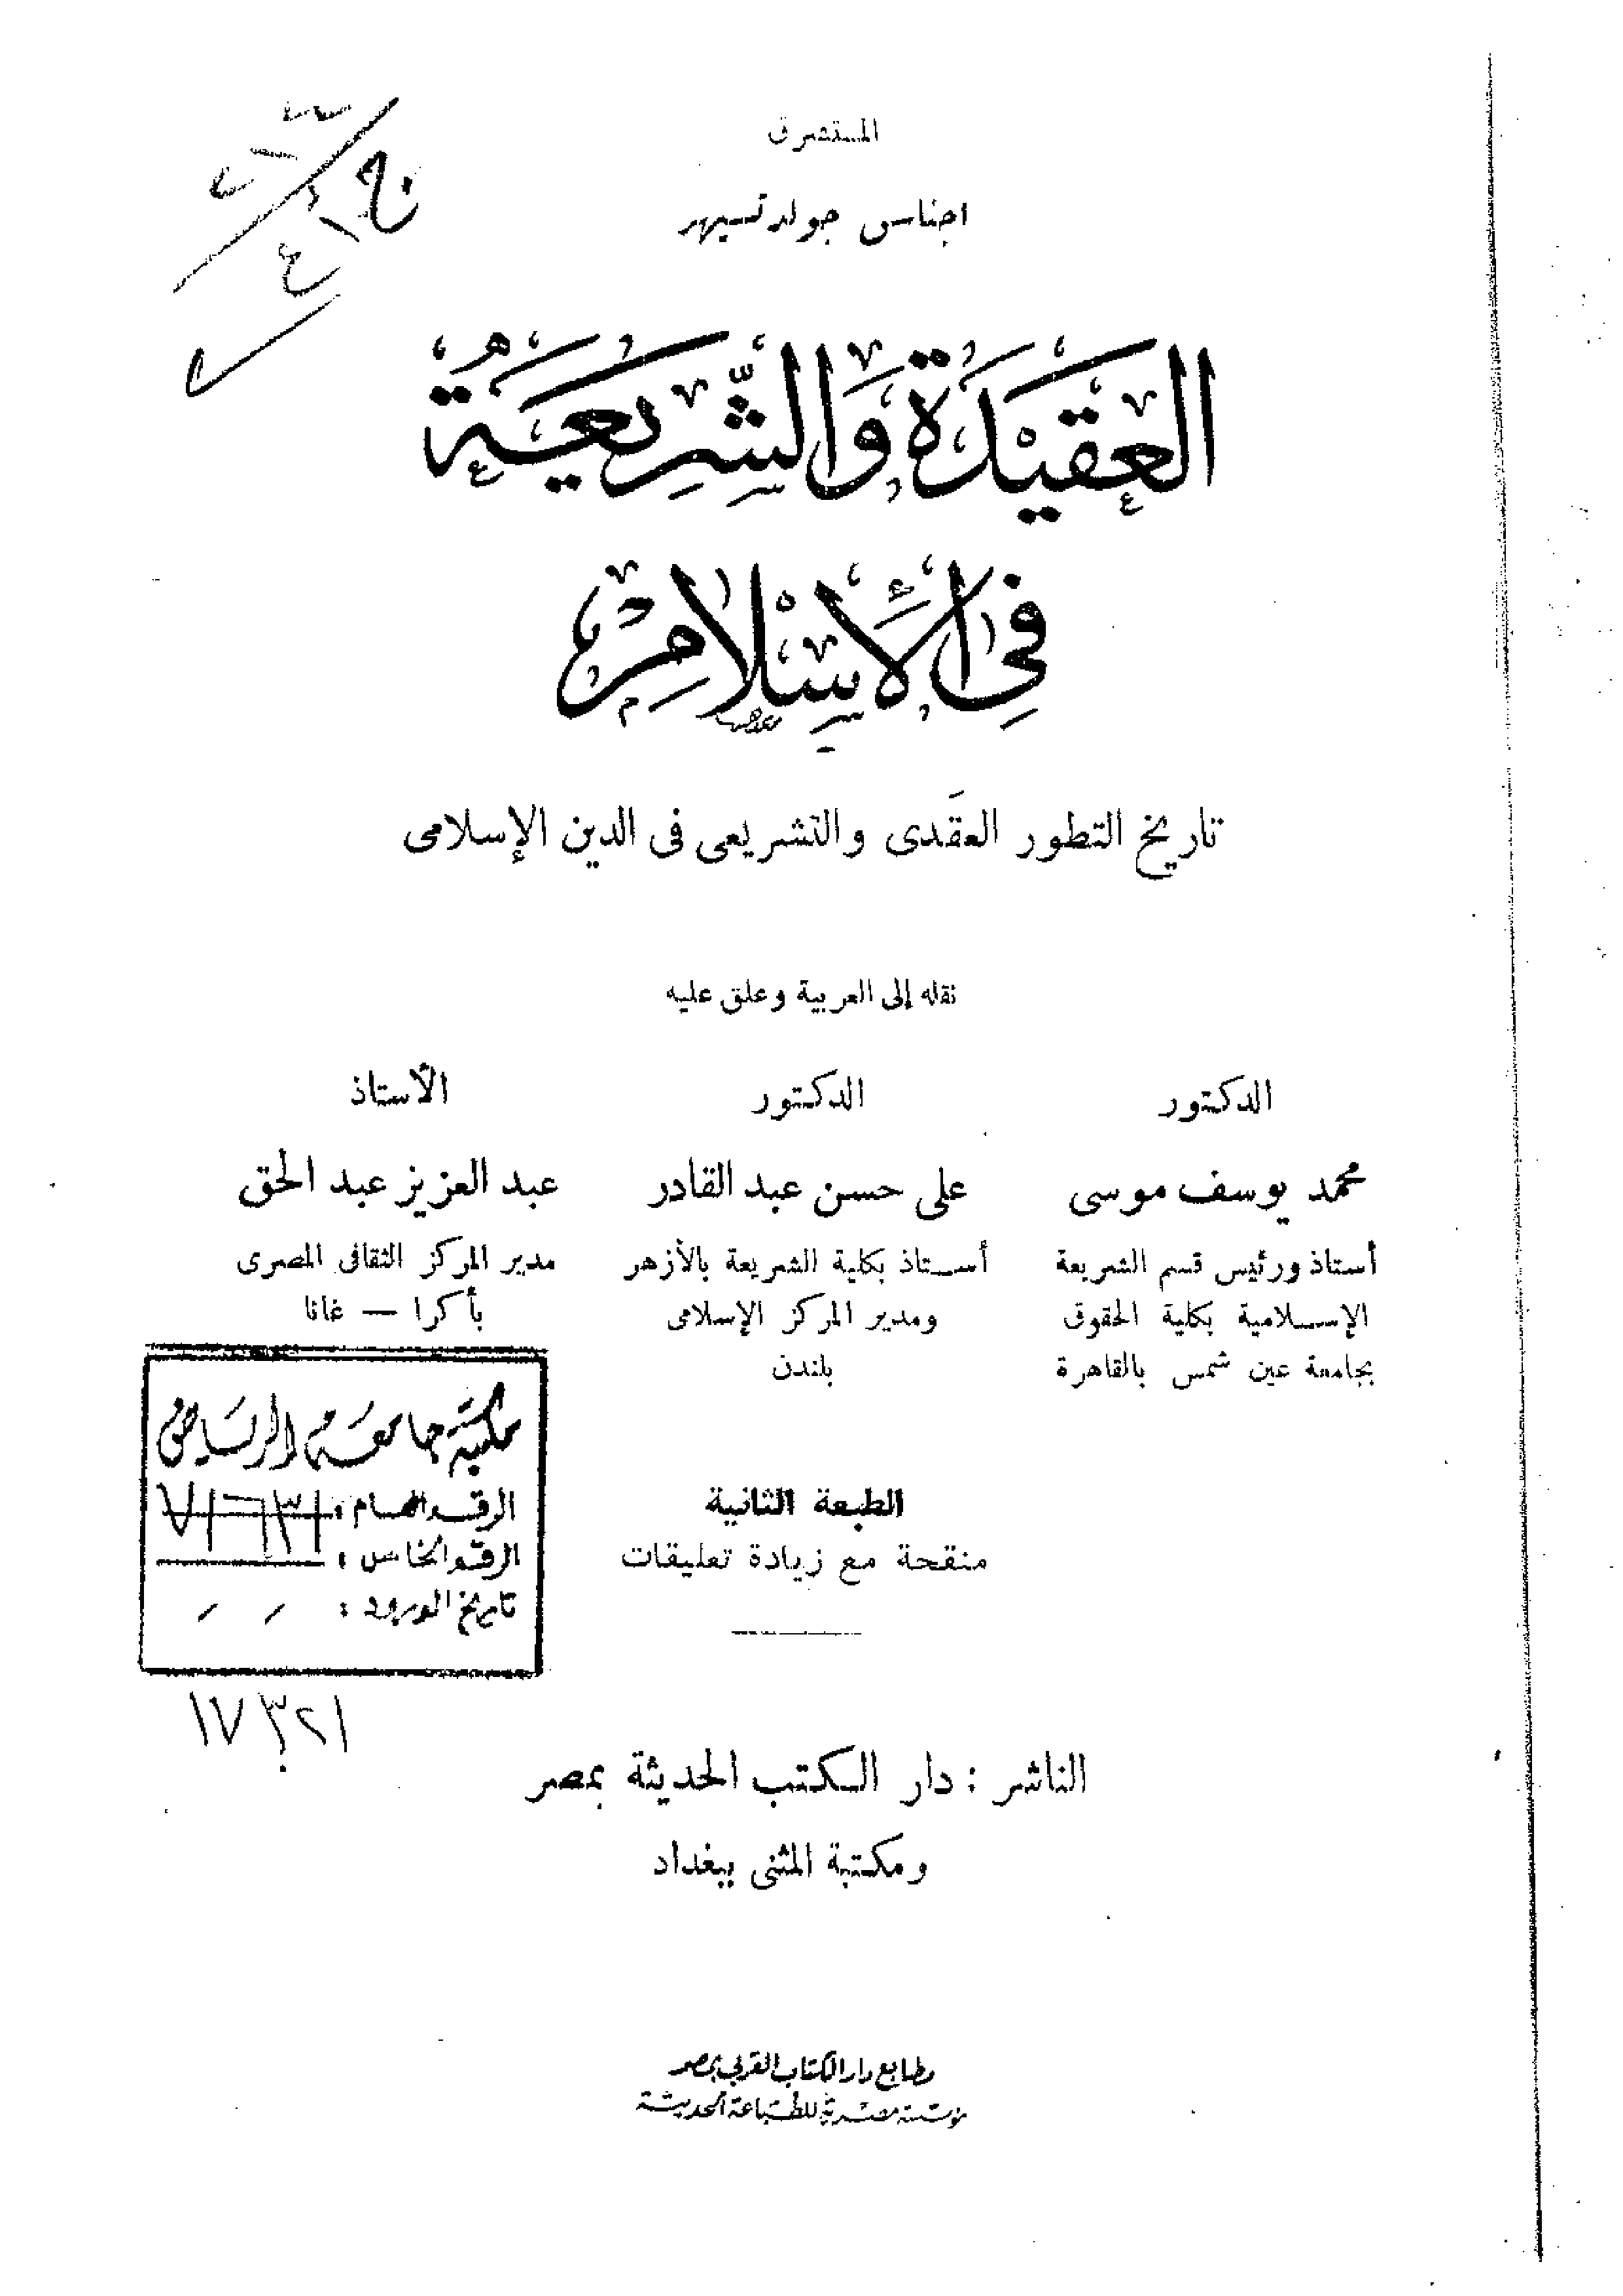 المستشرق
اجناس جولد تسيهر
العَقيدَة وَالشِّرِيعَيةُ
فِي الأَسِلامِ
تاريخ التطور العقَدى والتشريعى فى الدين الإسلامى
نقله إلى العربية وعلق عليه
الدكتور
محمد يوسف موسى
أستاذ ورئيس قسم الشريعة
الإسلامية بكلية الحقوق
بجامعة عين شمس بالقاهرة
الدكتور
على حسن عبد القادر
أستاذ بكلية الشريعة بالأزهر
ومدير المركز الإسلامى
بلندن
الأستاذ
عبد العزيز عبد الحق
مدير المركز الثقافى المصرى
بأكرا — غانا
مكتبة جامعة الرياض
الرقم العام :
الرقم الخاص :
تاريخ الورود :
١٧٣٢١
الطبعة الثانية
منقحة مع زيادة تعليقات
الناشر : دار الكتب الحديثة بمصر
ومكتبة المثنى ببغداد
مطابع دار الكتاب العربي بمصر
مؤسسة مصرية للطباعة الحديثة